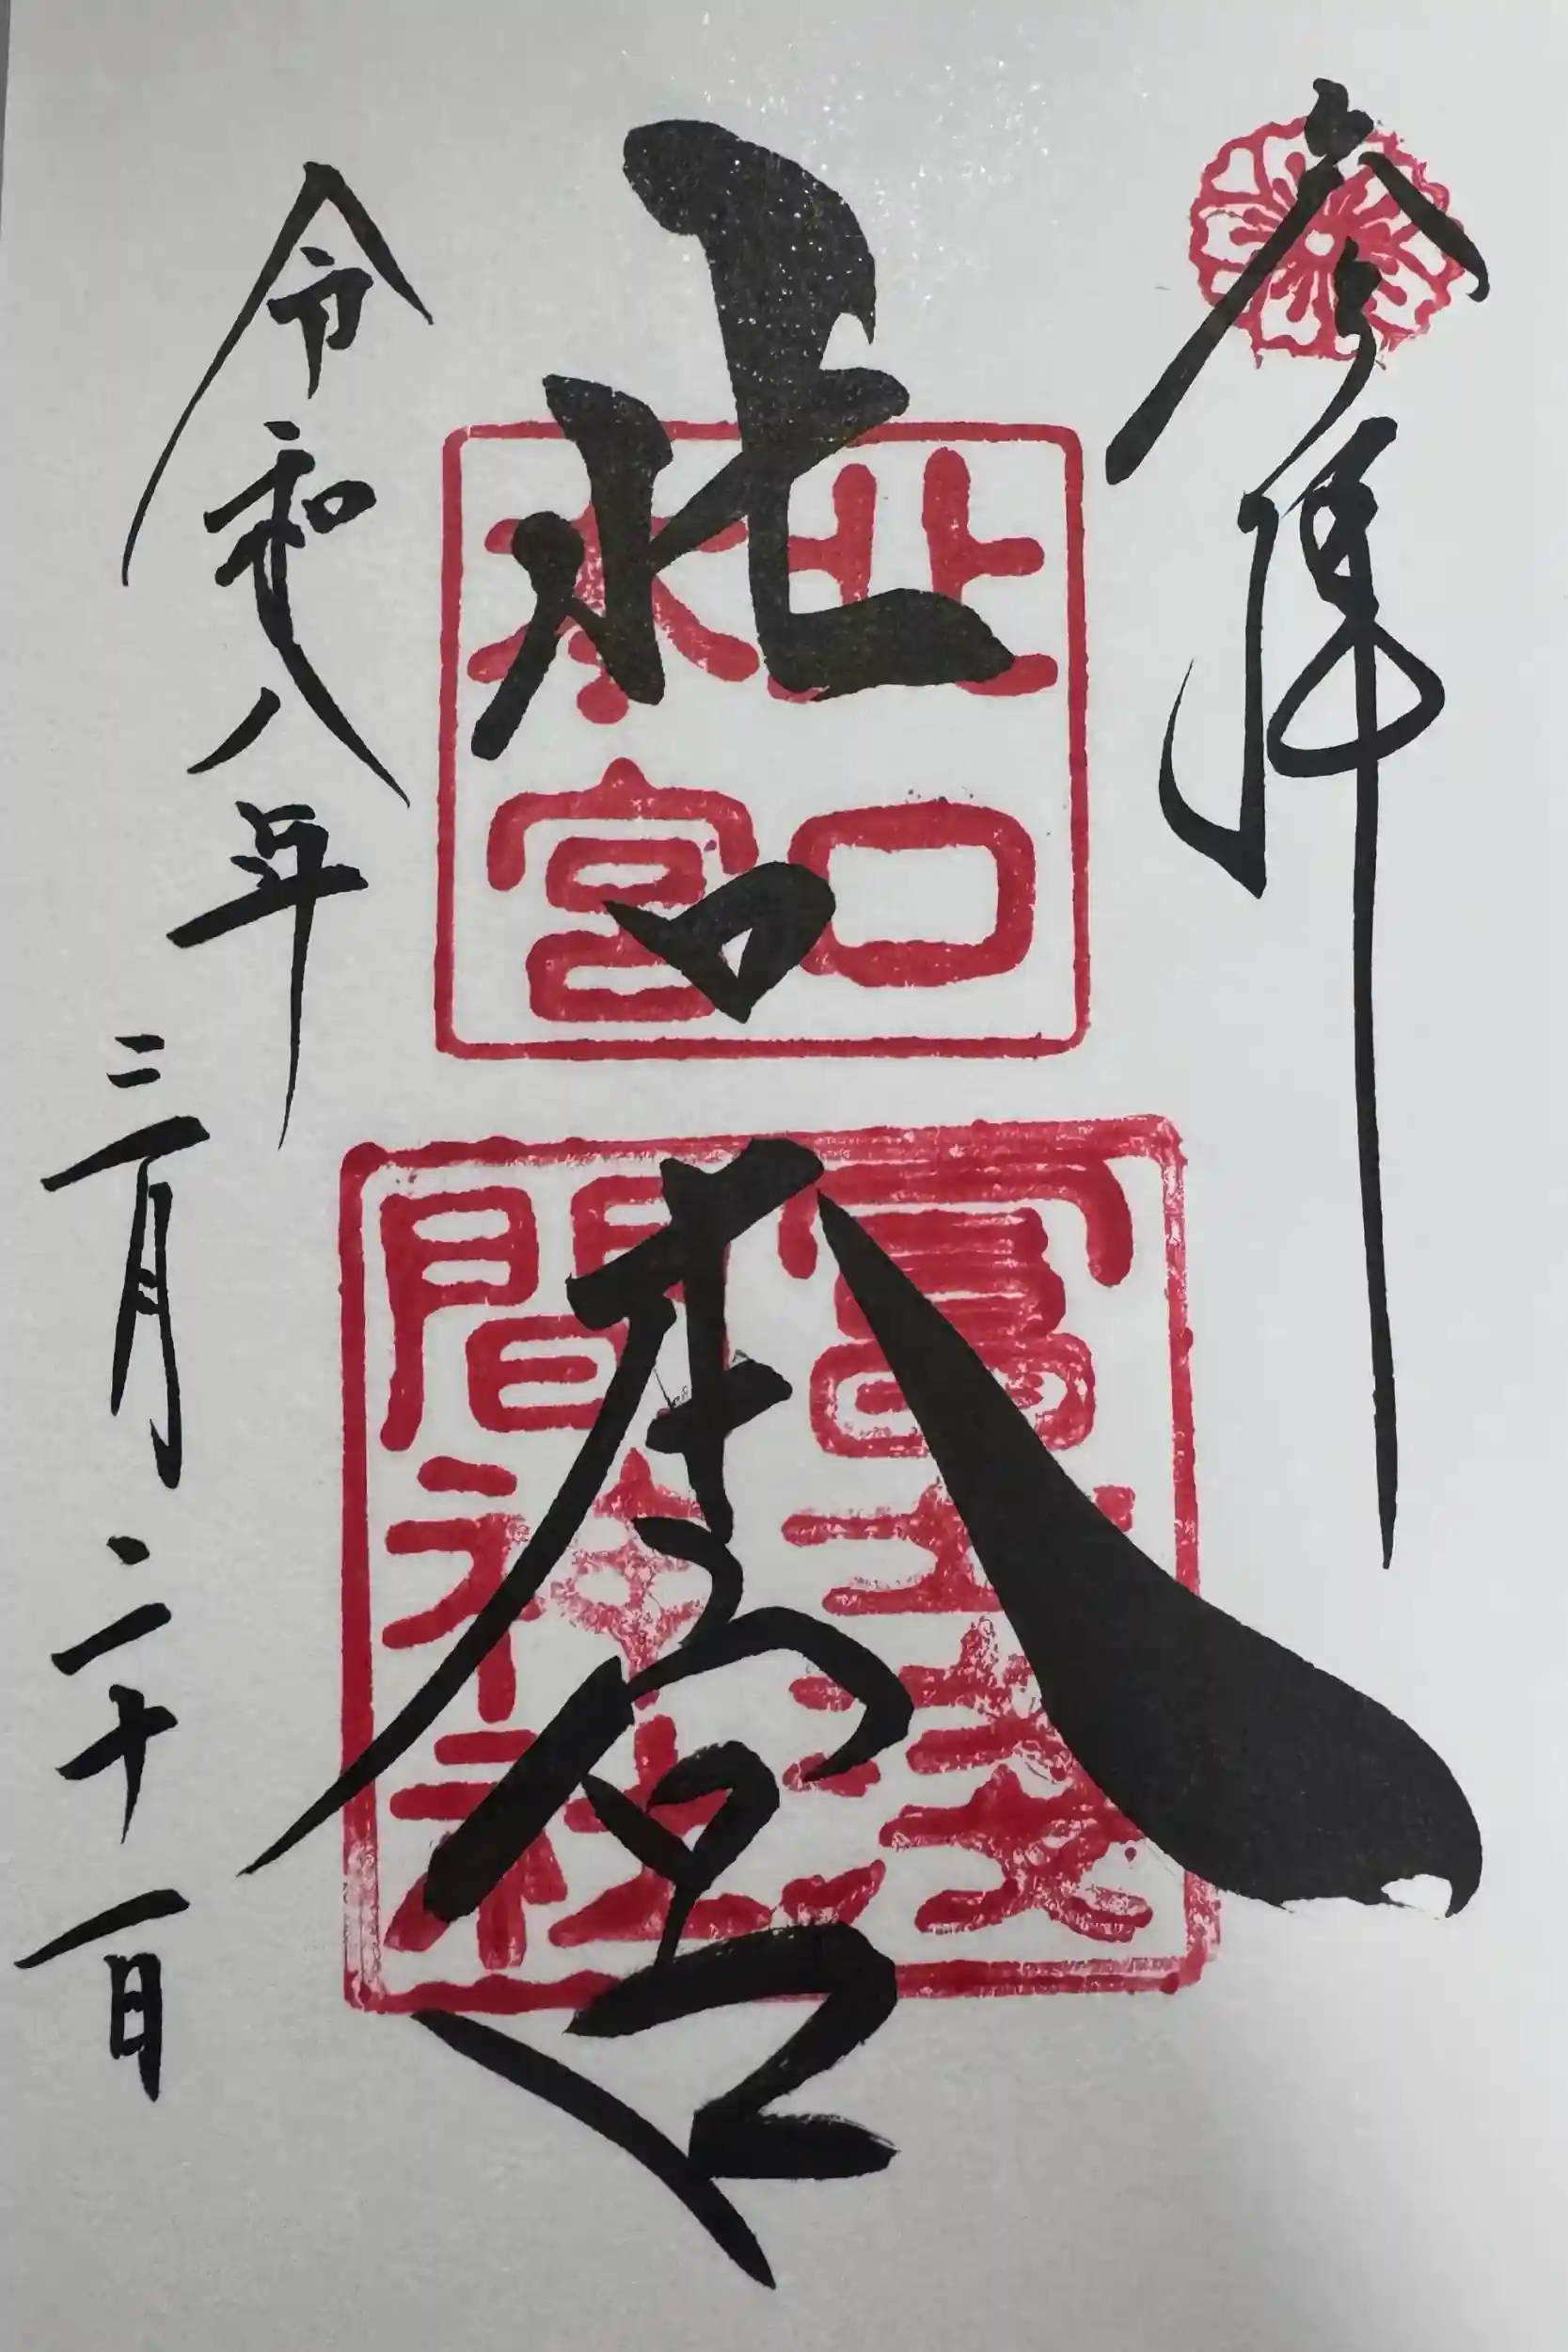 参拝
北口本宮
北口
本宮
冨士淺
間神社
令和八年三月二十一日